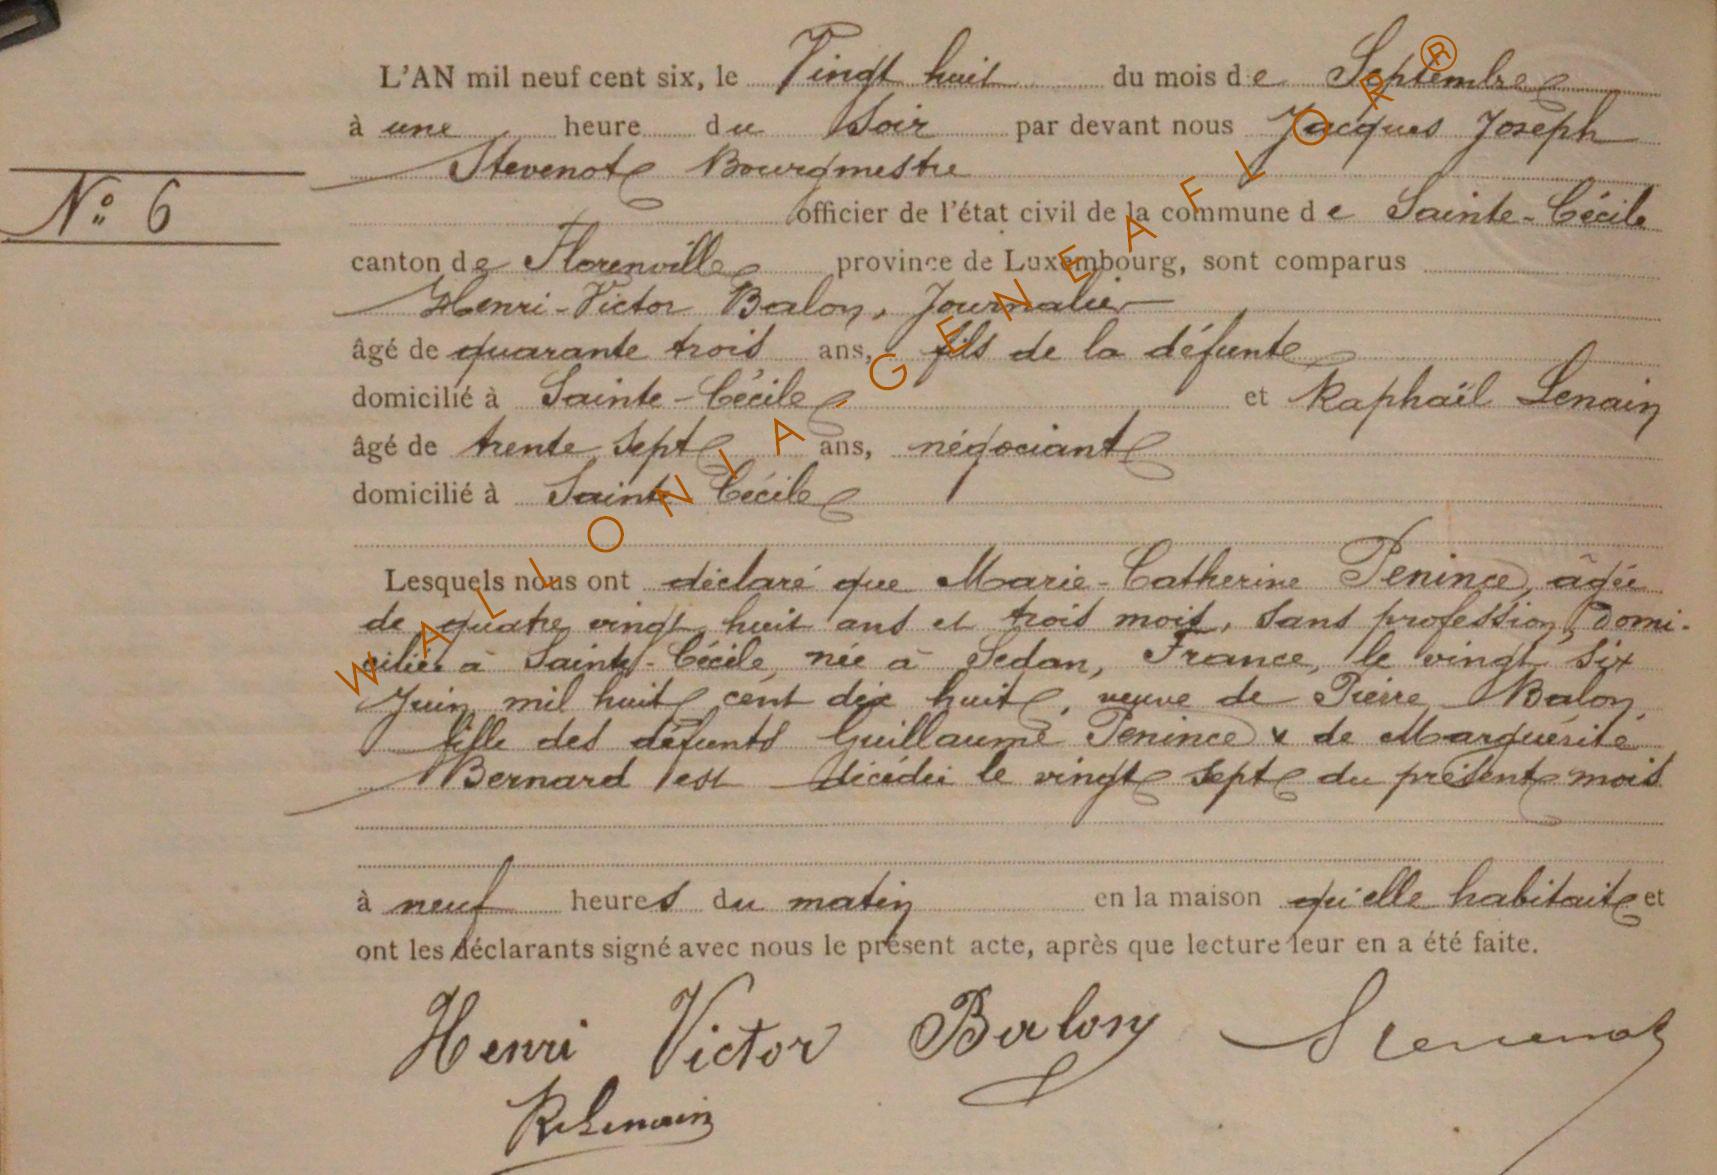 L'AN mil neuf cent six, le Vingt huit du mois de Septembre
à une heure du Soir par devant nous Jacques Joseph
Stevenot Bourgmestre
N° 6
officier de l'état civil de la commune de Sainte-Cécile
canton de Florenville province de Luxembourg, sont comparus
Henri-Victor Balon, Journalier
âgé de quarante trois ans, fils de la défunte
domicilié à Sainte-Cécile et Raphaël Lenain
âgé de trente sept ans, négociant
domicilié à Sainte Cécile
Lesquels nous ont déclaré que Marie-Catherine Penince, âgée
de quatre vingt huit ans et trois mois, sans profession, domi-
ciliée à Sainte-Cécile, née à Sedan, France, le vingt six
Juin mil huit cent dix huit, veuve de Pierre Balon,
fille des défunts Guillaume Penince & de Marguérite
Bernard est décédée le vingt sept du présent mois
à neuf heures du matin en la maison qu'elle habitait et
ont les déclarants signé avec nous le présent acte, après que lecture leur en a été faite.
Henri Victor Balon Stevenot
R. Lenain
WALLONIA GENEAFLOR®